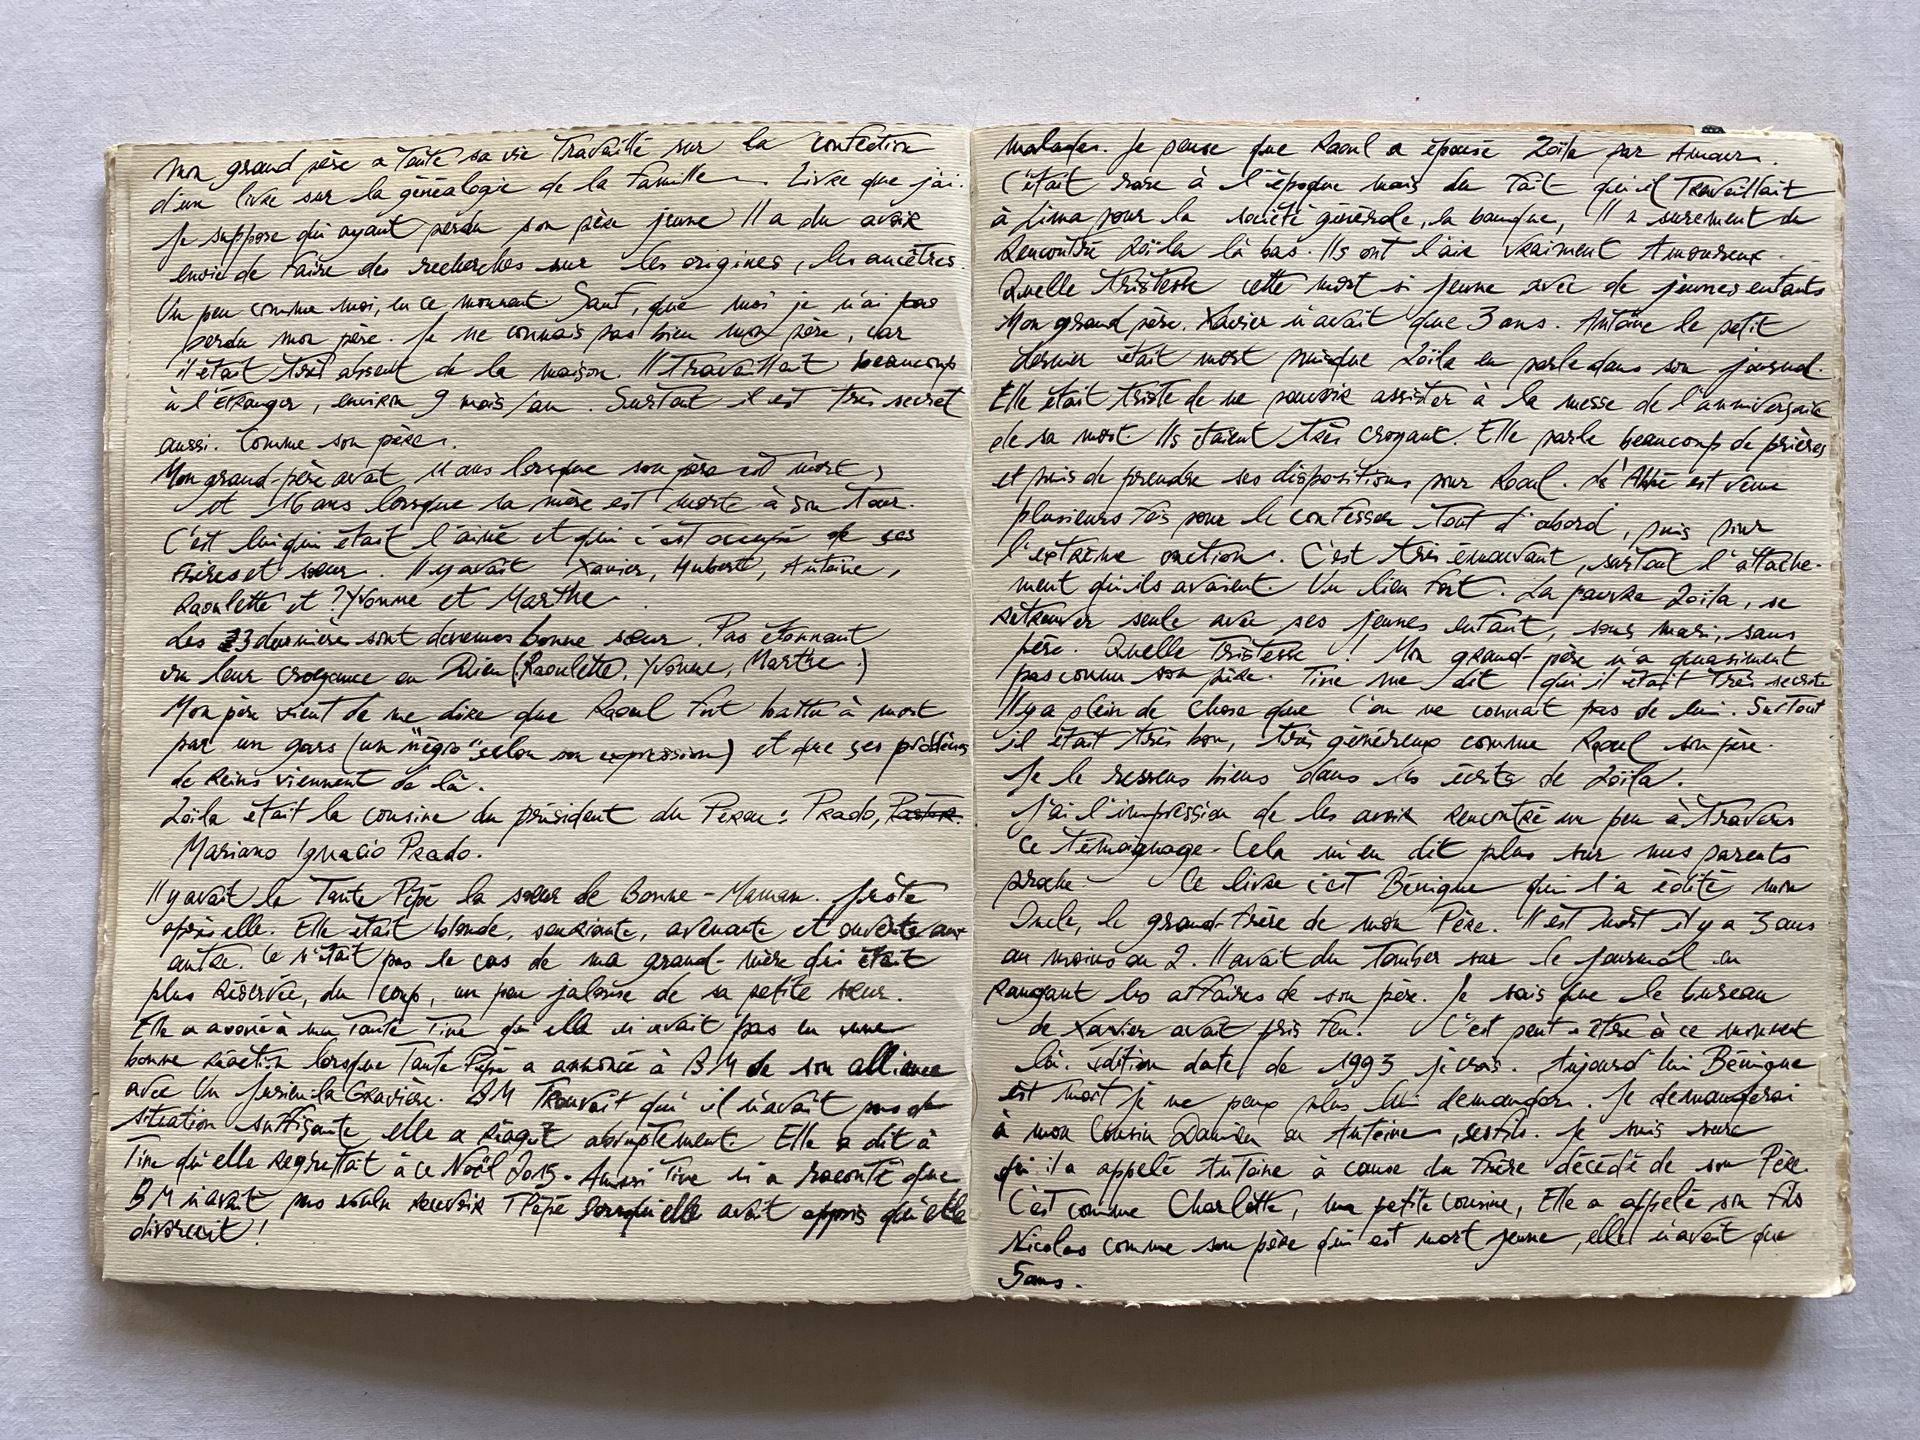 Mon grand père a toute sa vie travaillé sur la confection
d'un livre sur la généalogie de la famille. Livre que j'ai.
Je suppose qu'ayant perdu son père jeune Il a du avoir
envie de faire des recherches sur les origines, les ancêtres.
Un peu comme moi, en ce moment. Sauf, que moi je n'ai pas
perdu mon père. Je ne connais pas bien mon père, car
il était très absent de la maison. Il travaillait beaucoup
à l'étranger, environ 9 mois/an. Surtout il est très secret
aussi. Comme son père.
Mon grand-père avait 11 ans lorsque son père est mort,
et 16 ans lorsque sa mère est morte à son tour.
C'est lui qui était l'ainé et qui s'est occupé de ses
frères et sœur. Il y avait Xavier, Hubert, Antoine,
Raoulette et ? Yvonne et Marthe.
Les 3 dernière sont devenues bonne sœur. Pas étonnant
vu leur croyance en Dieu (Raoulette, Yvonne, Marthe.)
Mon père vient de me dire que Raoul fut battu à mort
par un gars (un "négro" selon son expression) et que ses problèmes
de Reins viennent de là.
Zoïla était la cousine du président du Pérou: Prado, Pastor.
Mariano Ignacio Prado.
Il y avait la Tante Pépé la sœur de Bonne-Maman. juste
après elle. Elle était blonde, souriante, avenante et ouverte aux
autre. Ce n'était pas le cas de ma grand-mère qui était
plus Réservée, du coup, un peu jalouse de sa petite sœur.
Elle a avoué à ma Tante Tine qu'elle n'avait pas eu une
bonne réaction lorsque Tante Pépé a annoncé à BM de son alliance
avec Un Jurien la Gravière. BM Trouvait qu'il n'avait pas de
situation suffisante, elle a Réagit abruptement. Elle a dit à
Tine qu'elle Regrettait à ce Noël 2015. Aussi Tine m'a raconté que
BM n'avait pas voulu recevoir TPépé lorsqu'elle avait appris qu'elle
divorcait !
malades. Je pense que Raoul a épousé Zoïla par Amour.
C'était rare à l'époque mais du fait qu'il Travaillait
à Lima pour la société générale, la banque, Il a surement du
Rencontré Zoïla là bas. Ils ont l'air vraiment Amoureux.
Quelle tristesse cette mort si jeune avec de jeunes enfants
Mon grand père. Xavier n'avait que 3 ans. Antoine le petit
dernier était mort puisque Zoïla en parle dans son journal.
Elle était triste de ne pouvoir assister à la messe de l'anniversaire
de sa mort Ils étaient très croyant. Elle parle beaucoup de prières
et puis de prendre ses dispositions pour Raoul. L'Abbé est venu
plusieurs fois pour le confesser Tout d'abord, puis pour
l'extrème onction. C'est très émouvant, surtout l'attache-
ment qu'ils avaient. Un lien fort. La pauvre Zoïla, se
retrouver seule avec ses jeunes enfant, sans mari, sans
père. Quelle Tristesse ! Mon grand-père n'a quasiment
pas connu son père. Tine me dit qu'il était très secrète
Il y a plein de chose que l'on ne connait pas de lui. Surtout
il était très bon, très généreux comme Raoul son père.
Je le ressens biens dans les écrits de Zoïla.
J'ai l'impression de les avoir rencontré un peu à travers
ce témoignage. Cela m'en dit plus sur mes parents
proche. Ce livre c'est Bénigne qui l'a édité mon
Oncle, le grand-frère de mon Père. Il est mort il y a 3 ans
au moins ou 2. Il avait du tomber sur le journal en
Rangeant les affaires de son père. Je sais que le bureau
de Xavier avait pris feu. C'est peut-être à ce moment
là. Edition date de 1993 je crois. Aujourd'hui Bénigne
est mort je ne peux plus lui demander. Je demanderai
à mon Cousin Damien ou Antoine, ses fils. Je suis sure
qu'il a appelé Antoine à cause du frère décédé de son Père.
C'est comme Charlotte, ma petite cousine, Elle a appelé son fils
Nicolas comme son père qui est mort jeune, elle n'avait que
5 ans.